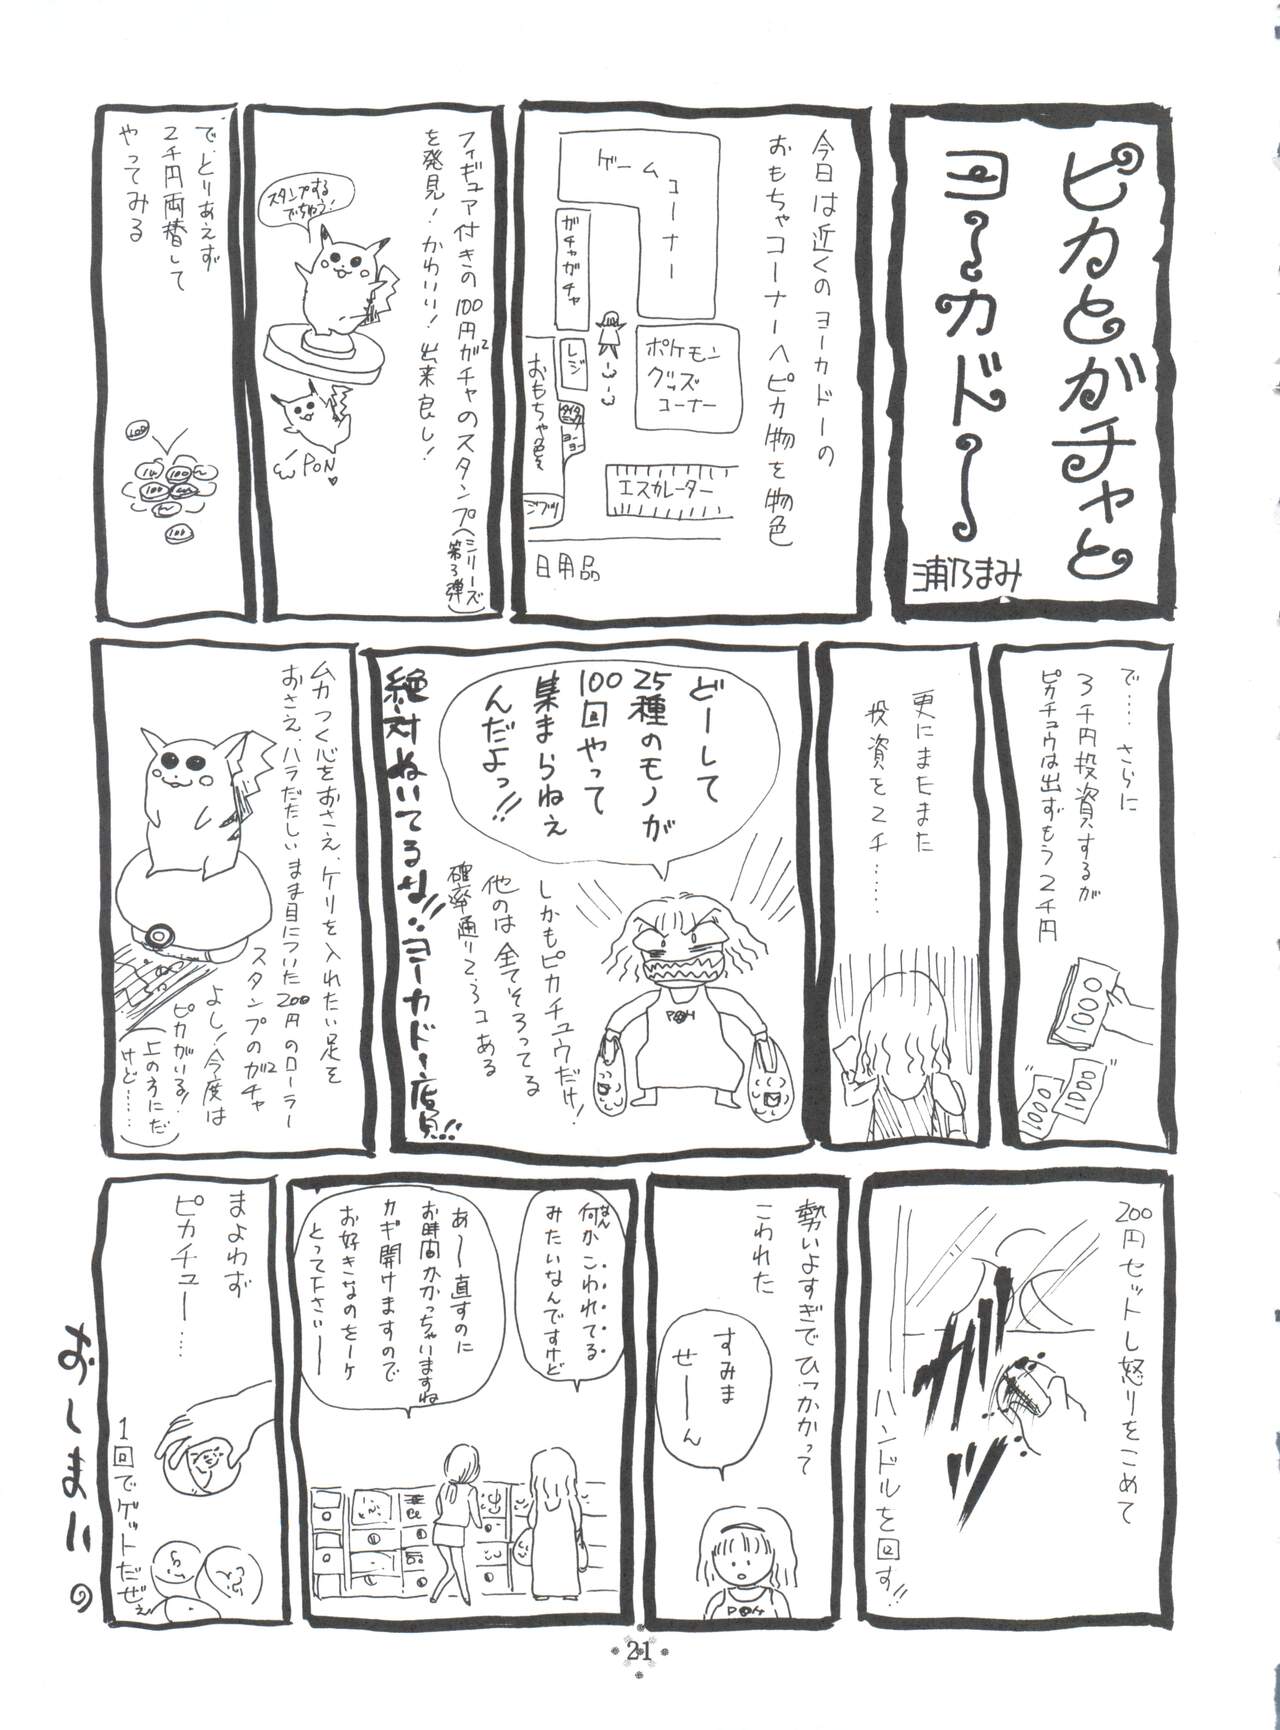 ピカとガチャと
ヨーカドー
浦乃まみ
今日は近くのヨーカドーの
おもちゃコーナーへピカ物を物色
ゲームコーナー
ガチャガチャ
レジ
ポケモン
グッズ
コーナー
おもちゃ色々
ヨーヨー
ジブリ
エスカレーター
日用品
フィギュア付きの100円ガチャのスタンプ(シリーズ第3弾)
を発見!かわいい!出来良し!
スタンプする
でちゅう!
PON
で、とりあえず
2千円両替して
やってみる
100
100
100
で……さらに
3千円投資するが
ピカチュウは出ずもう2千円
1000
1000
1000
更にまたまた
投資を2千……
どーして
25種のモノが
100回やって
集まらねぇ
んだよっ!!
しかもピカチュウだけ!
他のは全てそろってる
確率通り2、3コある
絶対ぬいてるな!!ヨーカドー店員!!
ムカつく心をおさえ、ケリを入れたい足を
おさえ、ハラだたしいまま目についた200円のローラー
スタンプのガチャ
よし!今度は
ピカがいる!
(上の方にだ
けど……)
200円セットし怒りをこめて
ハンドルを回す!!
ガガッ
勢いよすぎでひっかかって
こわれた
すみま
せーーん
何かこわれてる
なん
みたいなんですけど
あ〜直すのに
お時間かかっちゃいますね
カギ開けますので
お好きなのをーケ
とって下さい——
まよわず
ピカチュー……
1回でゲットだぜぇ
おしまいの
21